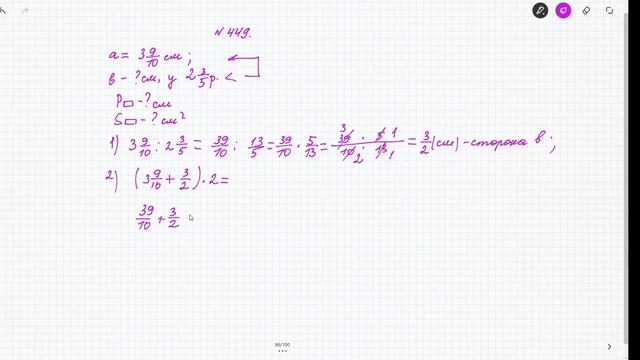 N 449.
a = 3 9/10 см;
в - ? см, у 2 3/5 р. <
P▭ - ? см
S▭ - ? см²
1) 3 9/10 : 2 3/5 = 39/10 : 13/5 = 39/10 · 5/13 = 39 · 5 / 10 · 13 = 3/2 (см) - сторона в;
2) (3 9/10 + 3/2) · 2 =
39/10 + 3/2
86/100